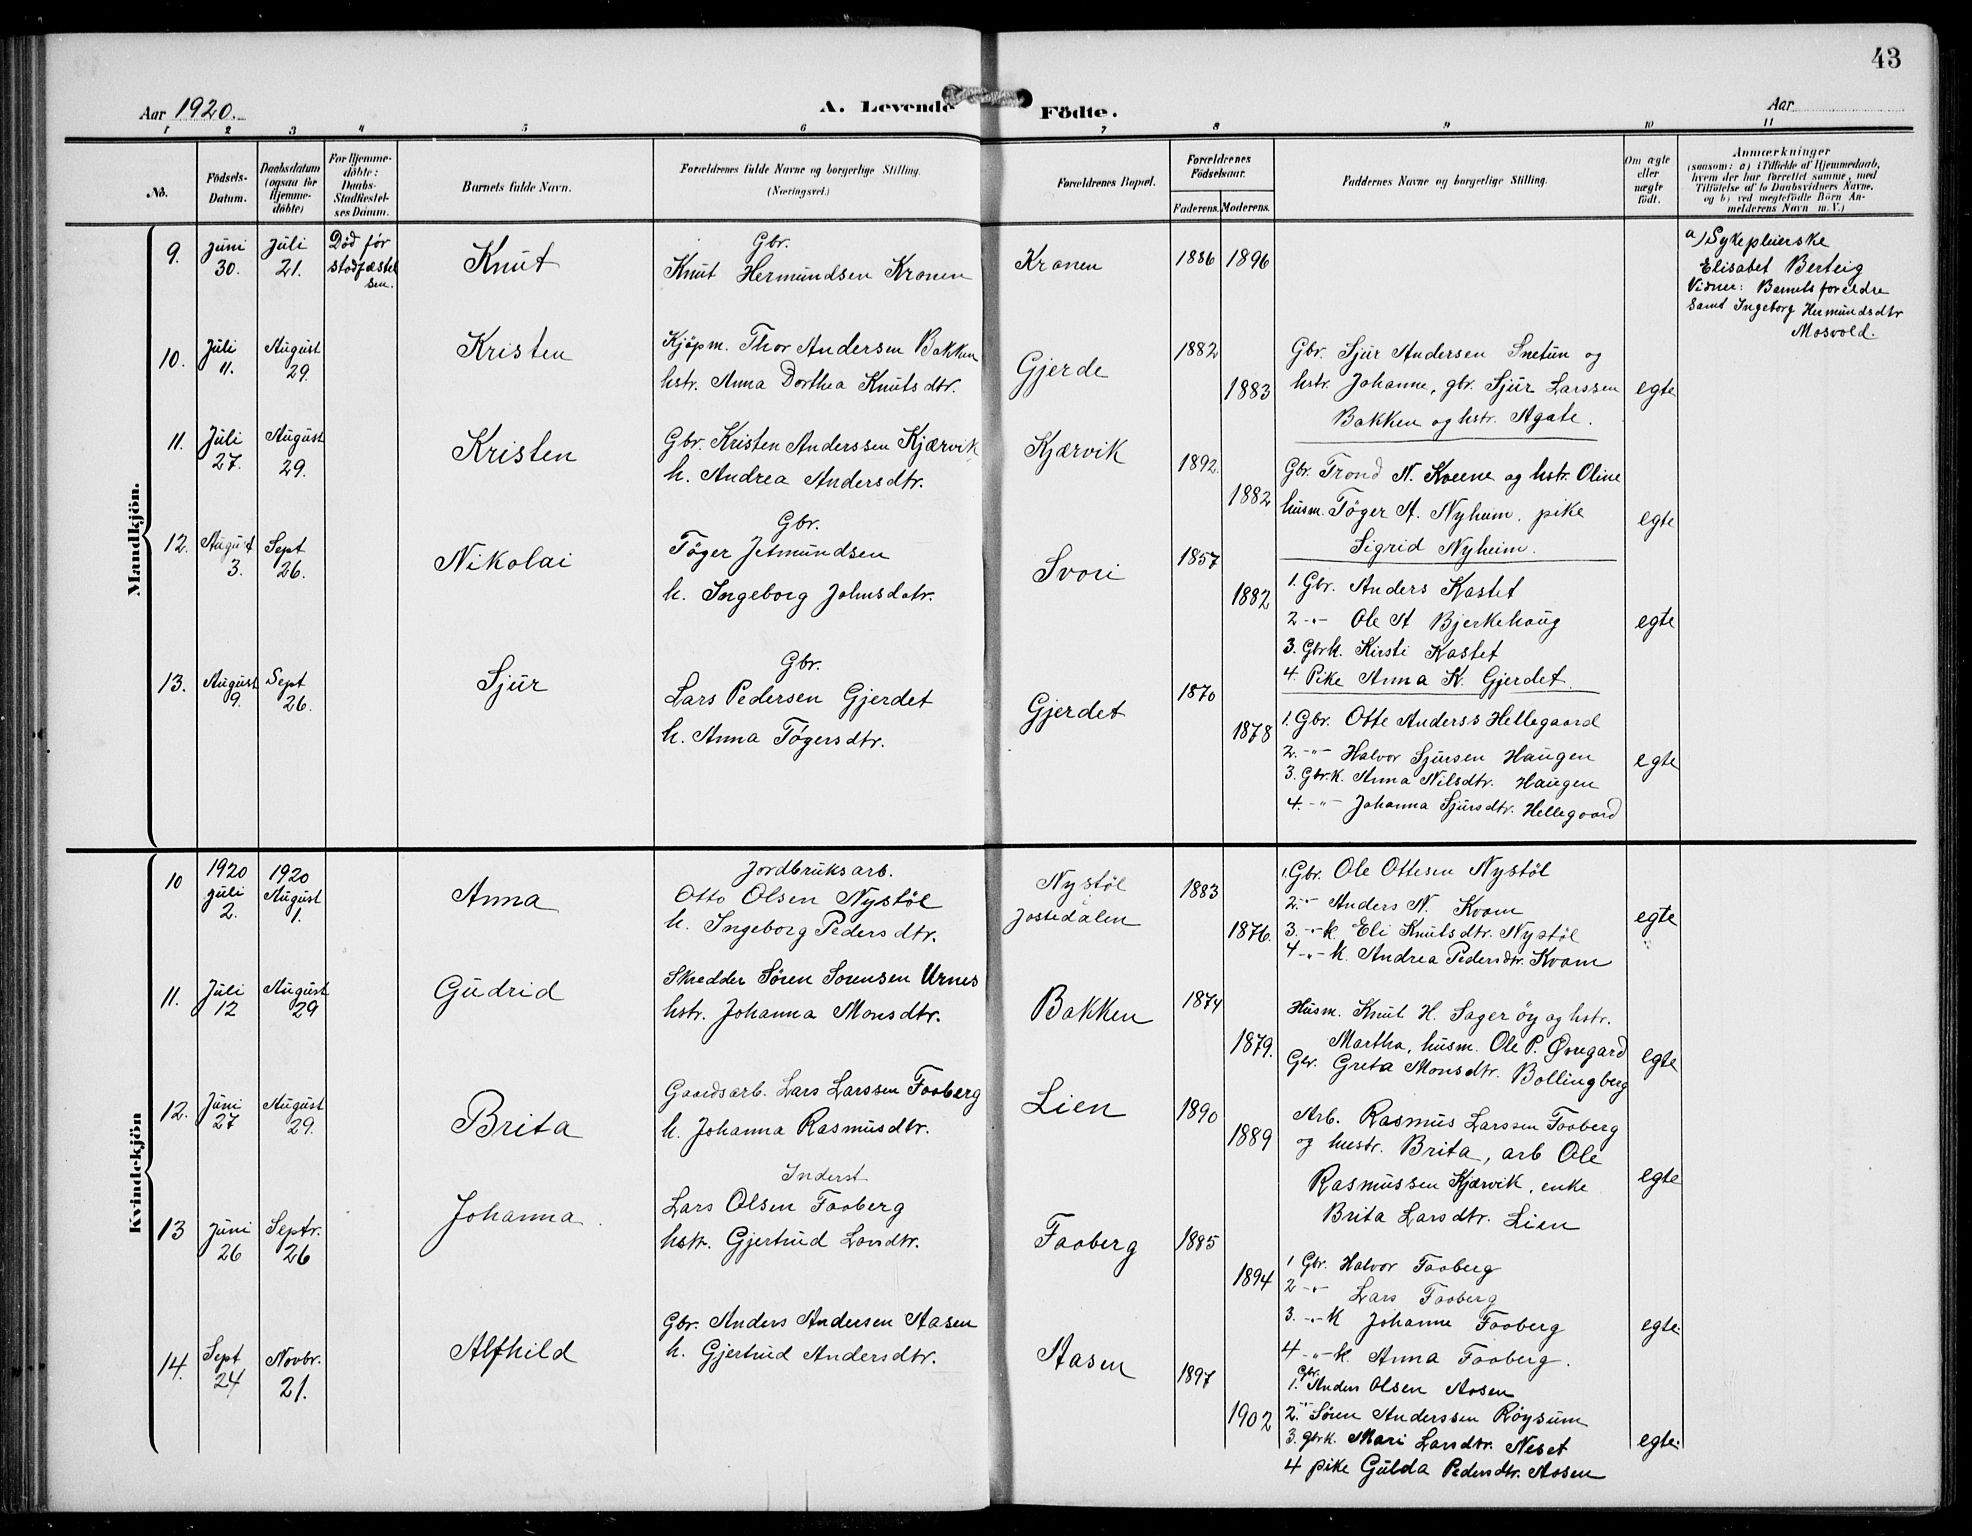 43
Aar 1920.
A. Levende Födte.
Aar
1 2 3 4 5 6 7 8 9 10 11
No.
Födsels-Datum.
Daabsdatum (ogsaa for Hjemme-döbte)
For Hjemme-döbte: Daabs-Stadfæstel-ses Datum.
Barnets fulde Navn.
Forældrenes fulde Navne og borgerlige Stilling. (Næringsvei.)
Forældrenes Bopæl.
Forældrenes Födselsaar.
Faderens. Moderens.
Faddernes Navne og borgerlige Stilling.
Om ægte eller uægte födt.
Anmærkninger
(saasom: a) i Tilfælde af Hjemmedaab,
hvem der har forrettet samme, med
Tilföielse af to Daabsvidners Navne,
og b) ved uægtefödte Börn An-
melderens Navn m. V.)
Mandkjön.
9. Juni 30. Juli 21. Död før stadfæstel sen.
Knut
Gbr.
Knut Hermundsen Kronen
Kronen
1886 1896
a) Sykepleierske
Elisabet Berteig
Vidner: Barnets foreldre
samt Ingeborg Hermundsdtr
Mosvold.
10. Juli 11. August 29.
Kristen
Kjöpm. Thor Andersen Bakken
hstr. Anna Dorthea Knutsdtr.
Gjerde
1882 1883
Gbr. Sjur Andersen Snetun og
hstr. Johanne, gbr. Sjur Larssen
Bakken og hstr. Agate.
egte
11. Juli 27. August 29.
Kristen
Gbr. Kristen Anderssen Kjærvik
h. Andrea Andersdtr.
Kjærvik
1892. 1882
Gbr. Trond N. Kveene og hstr. Oline
husm. Töger A. Nyheim, pike
Sigrid Nyheim.
egte
12. August 3. Sept 26.
Nikolai
Gbr.
Töger Jetmundsen
h. Ingeborg Johnsdatr.
Svori
1857 1882
1. Gbr. Anders Kastet
2 -"- Ole A Bjerkehaug
3. Gbrk. Kirsti Kastet
4. Pike Anna K. Gjerdet.
egte
13. August 9. Sept 26.
Sjur
Gbr.
Lars Pedersen Gjerdet
h. Anna Tögersdtr.
Gjerdet
1870 1878
1. Gbr. Otte Anderss Hellegaard
2. -"- Halvor Sjursen Haugen
3. Gbr.k. Anna Nilsdtr. Haugen
4. -"- Johanna Sjursdtr. Hellegaard
egte
Kvindekjön
10 1920 Juli 2. 1920 August 1.
Anna
Jordbruksarb.
Otto Olsen Nystöl
h. Ingeborg Pedersdtr.
Nystöl
Jostedalen
1883 1876.
1. Gbr. Ole Ottesen Nystöl
2. -"- Anders N. Kvam
3. -"-k. Eli Knutsdtr. Nystöl
4 -"- k. Andrea Pedersdtr. Kvam
egte
11. Juli 12 August 29
Gudrid
Skredder Sören Sorensen Urnes
hstr. Johanna Monsdtr.
Bakken
1874 1879.
Husm. Knut H. Sageröy og hstr.
Martha, husm. Ole P. Øvregard
Gbr. Greta Monsdtr. Bollingberg
egte
12. Juni 27 August 29.
Brita
Gaardsarb. Lars Larssen Faaberg
h. Johanna Rasmusdtr.
Lien
1890 1889
Arb. Rasmus Larssen Faaberg
og hustr. Brita, arb Ole
Rasmussen Kjærvik, enke
Brita Larsdtr. Lien
egte
13 Juni 26 Septr. 26
Johanna
Inderst
Lars Olsen Faaberg
hstr. Gjertrud Larsdtr.
Faaberg
1885 1894
1 Gbr. Halvor Faaberg
2 -"- Lars Faaberg
3. -"- K Johanne Faaberg
4 -"- k. Anna Faaberg.
egte.
14. Sept 24 Novbr. 21.
Alfhild
Gbr. Anders Andersen Aasen
h. Gjertrud Andersdtr.
Aasen
1897 1902
1. Gbr. Anders Olsen Aasen
2. -"- Sören Anderssen Röysum
3. gbrk. Mari Larsdtr. Neset
4 pike Gulda Pedersdtr. Aasen
egte.